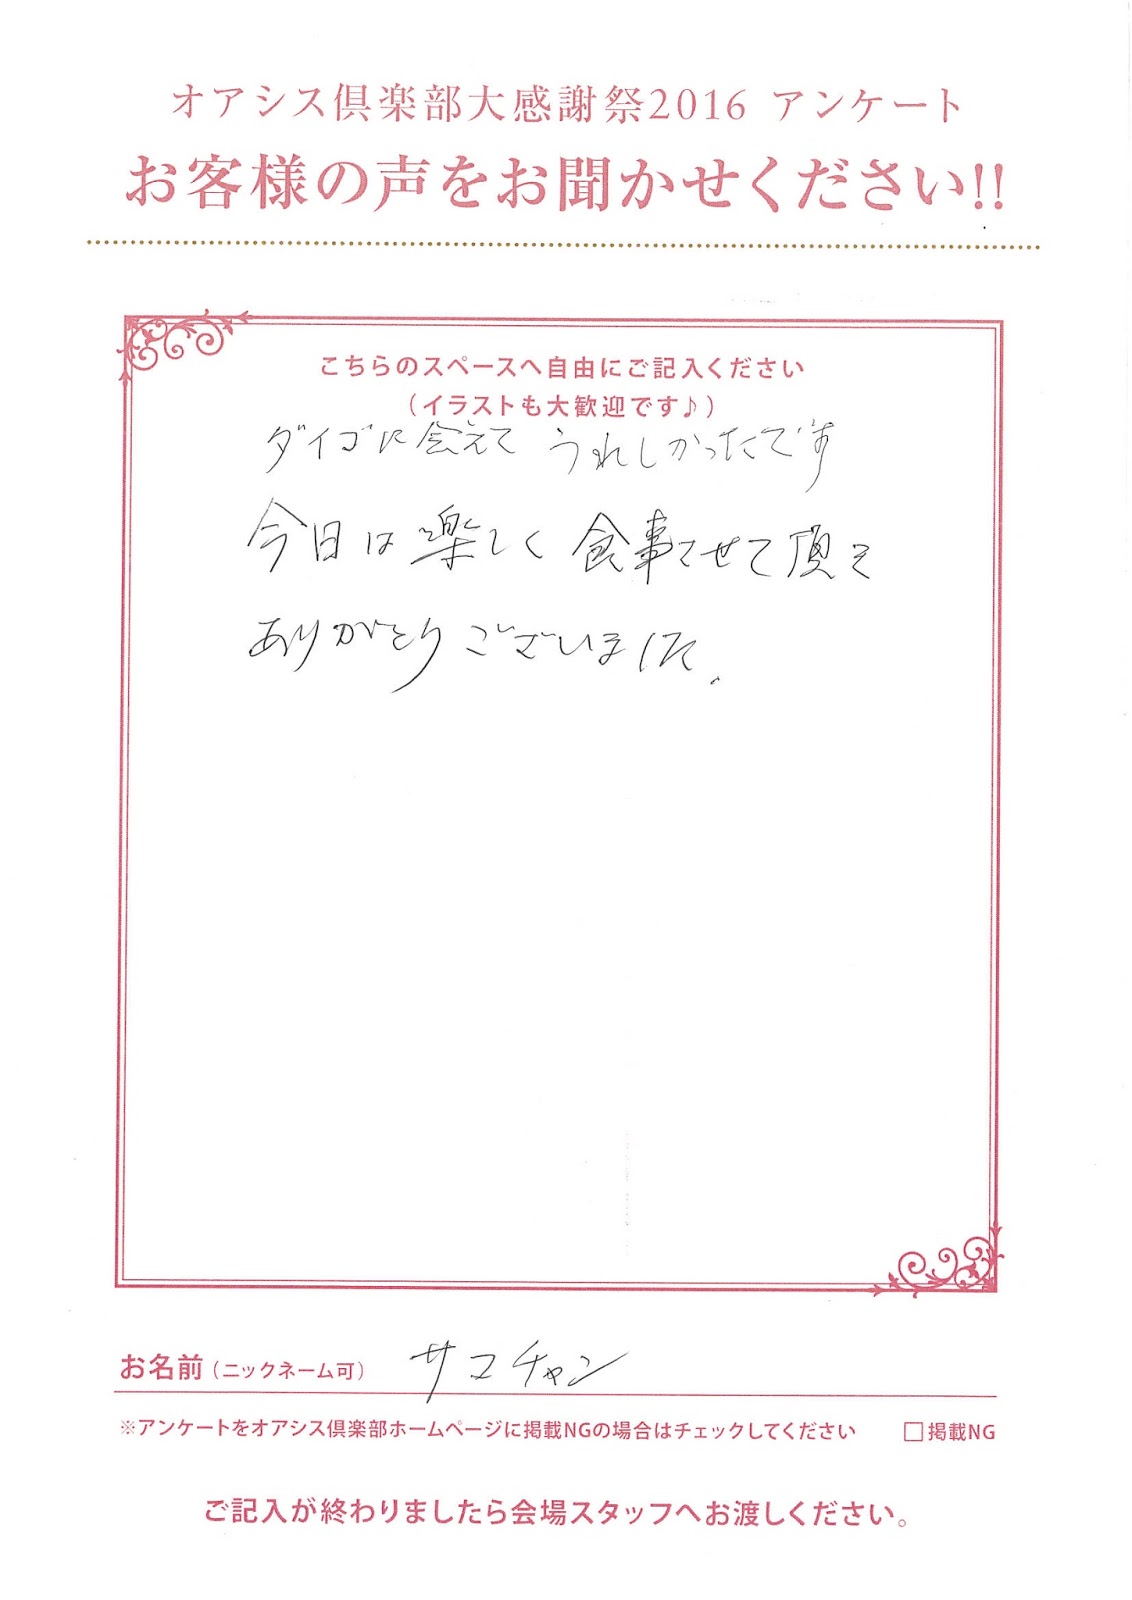 オアシス倶楽部大感謝祭2016 アンケート
お客様の声をお聞かせください!!
こちらのスペースへ自由にご記入ください
（イラストも大歓迎です♪）
ダイゴに会えて うれしかったです
今日は楽しく食事させて頂き
ありがとうございました。
お名前（ニックネーム可） サコチャン
※アンケートをオアシス倶楽部ホームページに掲載NGの場合はチェックしてください □掲載NG
ご記入が終わりましたら会場スタッフへお渡しください。